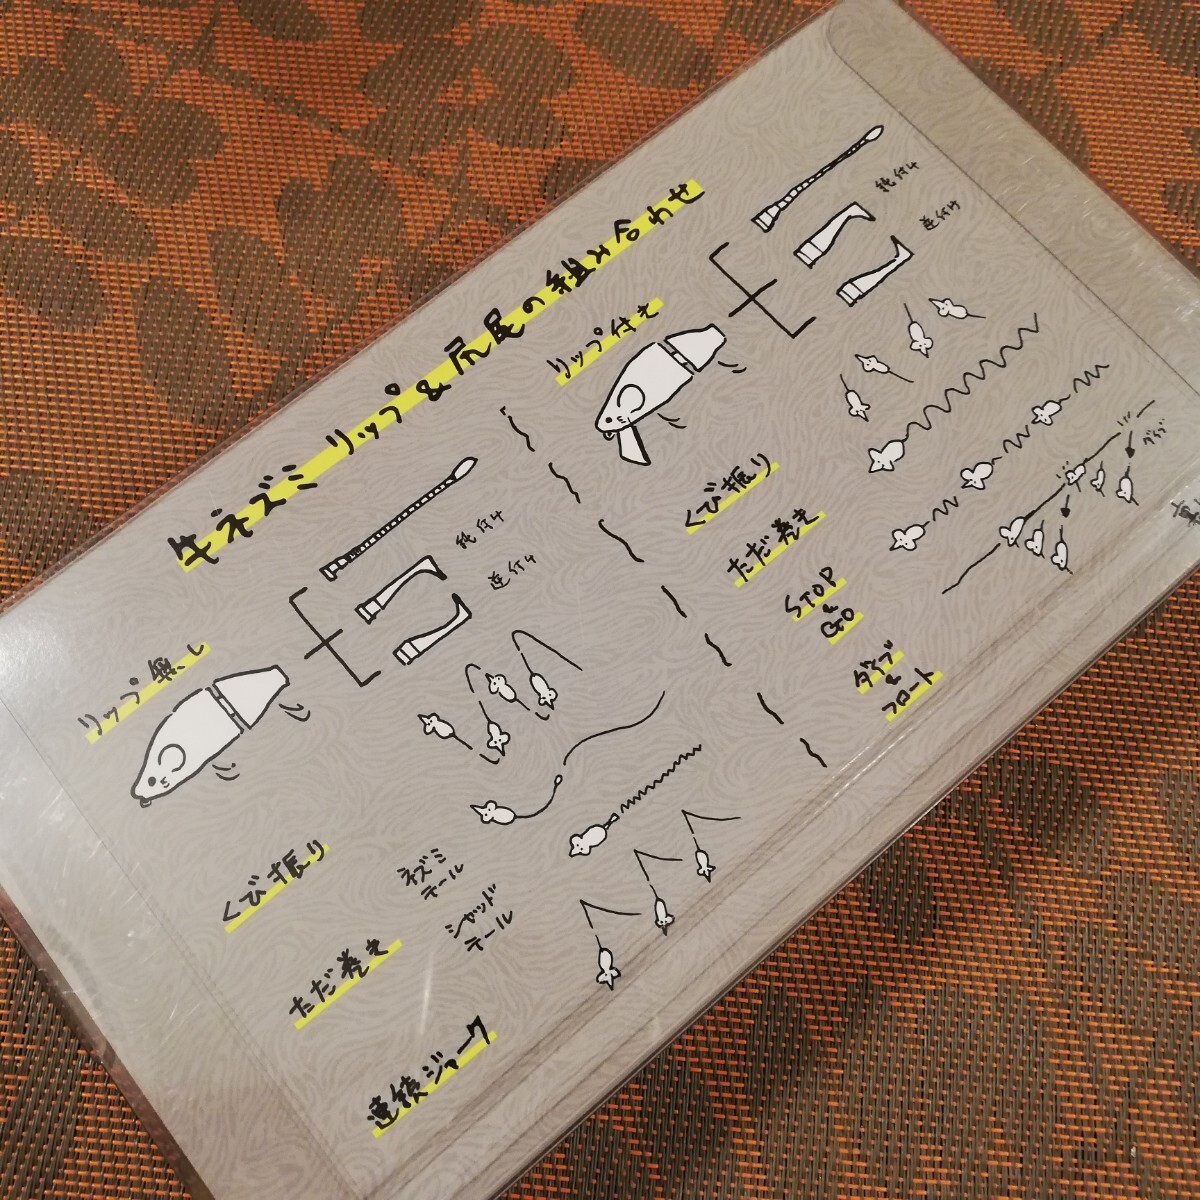 ギネズミ リップ&尻尾の組み合わせ
リップ無し
純付け
逆付け
くび振り
ただ巻き
ネズミ
テール
シャッド
テール
連続ジャーク
リップ付き
純付け
逆付け
くび振り
ただ巻き
STOP
&
GO
ダイブ
&
フロート
ダイブ